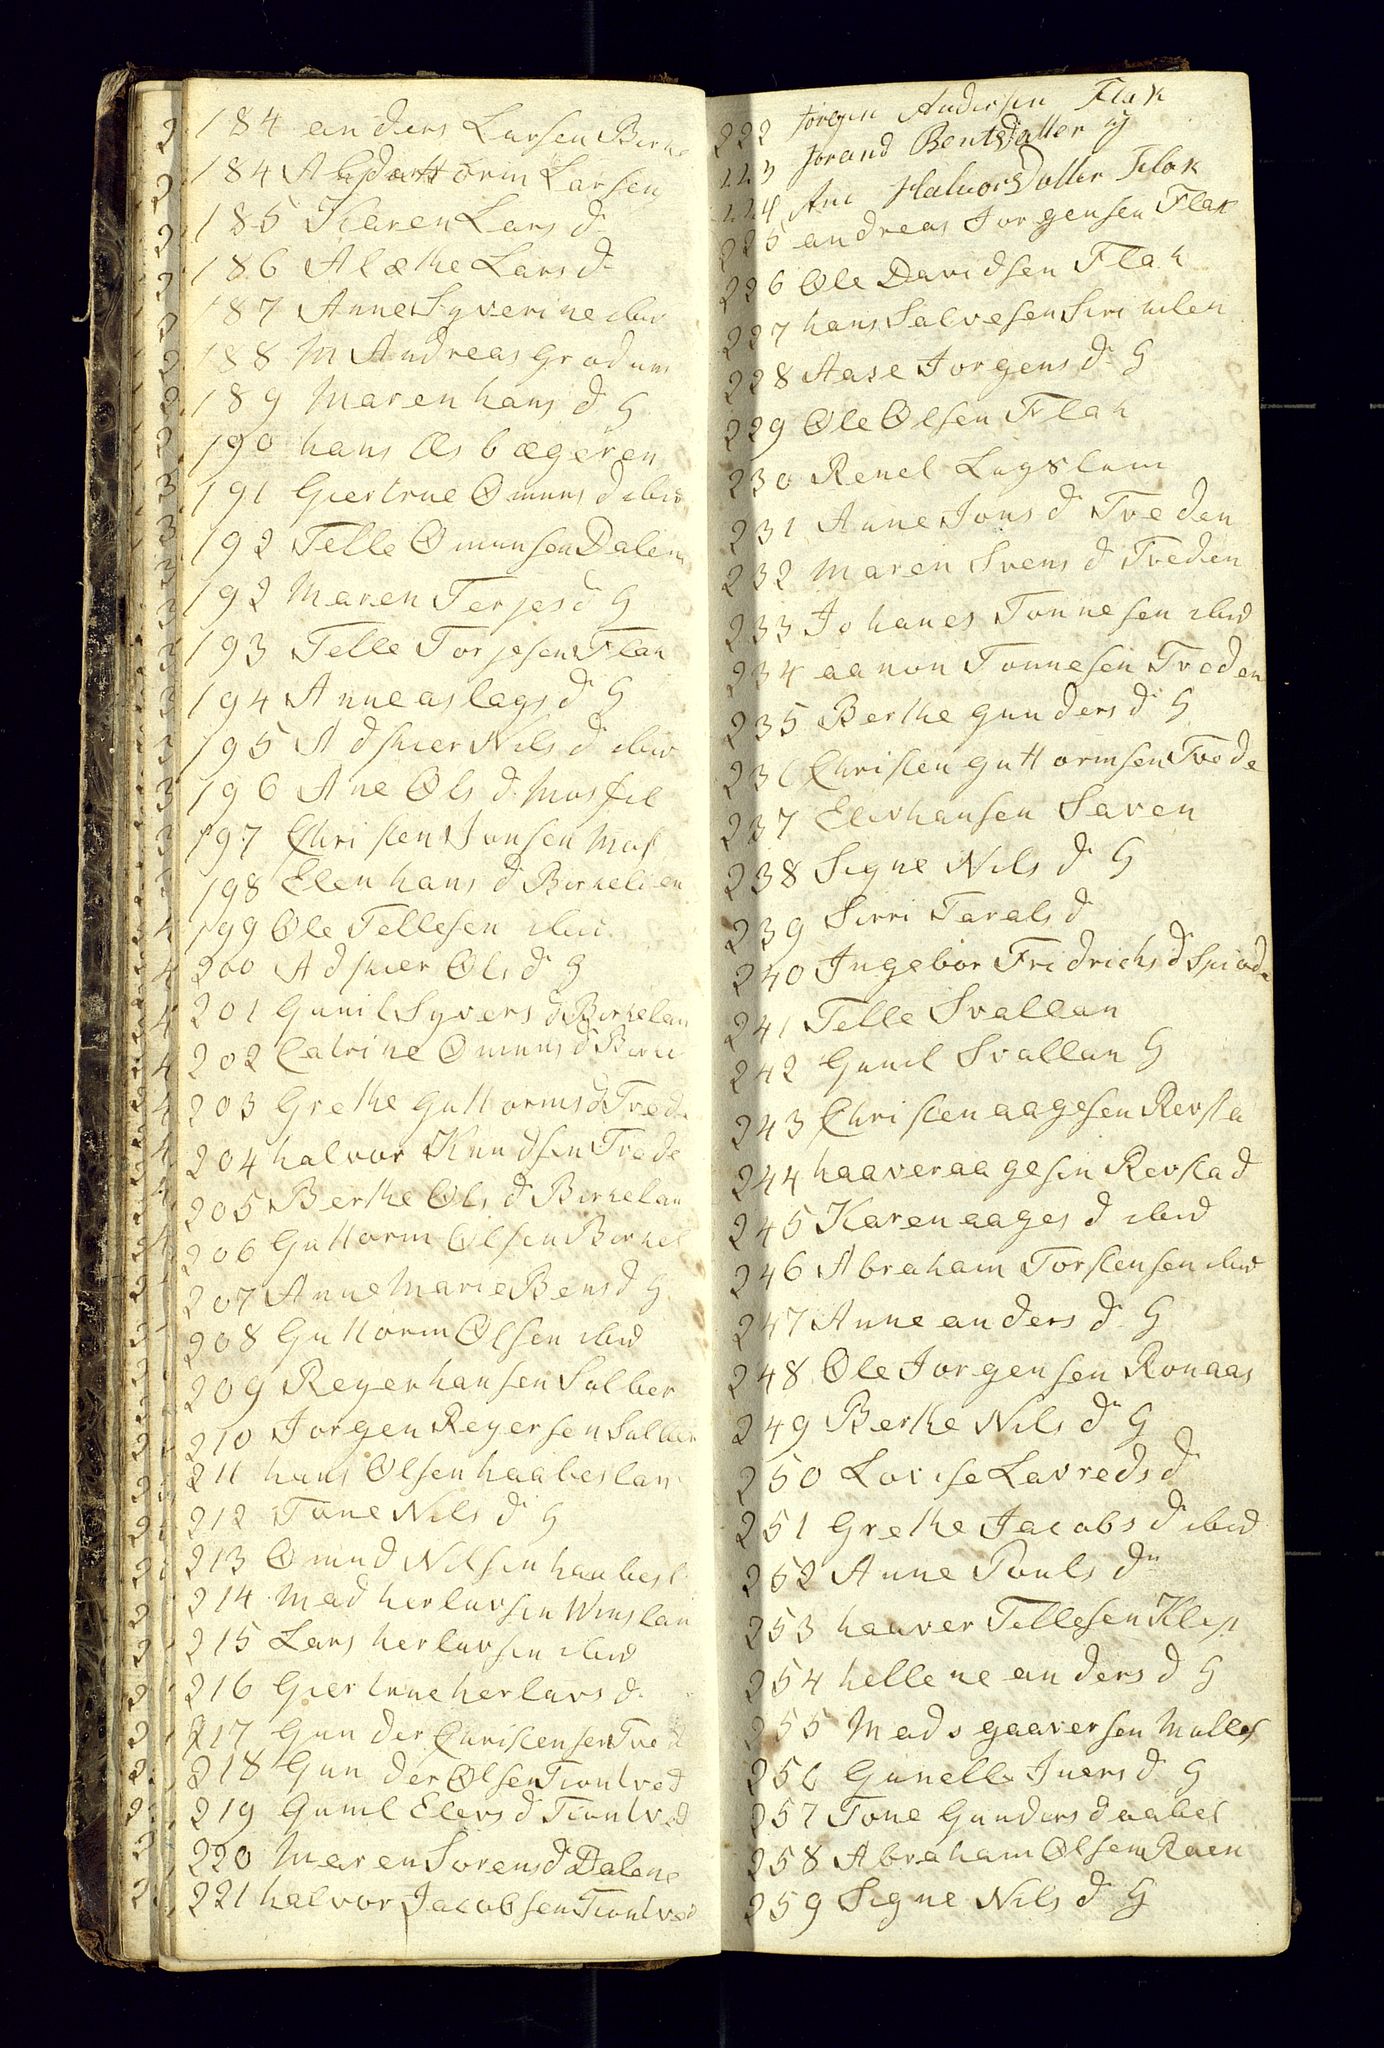 184 anders Larsen Birke
184 Larsen
185 Karen Lars d
186 Alethe Lars d
187 Anne Syverine ibid
188 M Andreas Grodum
189 Maren hans d G
190 hans Æsbægeren
191 Giertrue Omuns d ibid
192 Telle Omunsen Dalen
192 Maren Terjes d G
193 Telle Torjesen Flak
194 Anne aslags d G
195 Adskier Nils d ibid
196 Ane Ols d Mosfil
197 Christen Jonsen Mos
198 Elen hans d Birkelien
199 Ole Tellesen ibid
200 Adskier Ols d G
201 Gunil Syvers d Birkelan
202 Catrine Omuns d Birke
203 Grethe Guttorms d Tvede
204 halvor Knudsen Tvede
205 Berthe Ols d Birkelan
206 Guttorm Olsen Birkel
207 Anne Marie Bens d G
208 Guttorm Olsen ibid
209 Reyer hansen Salber
210 Jorgen Reyersen Salber
211 hans Olsen haabeslan
212 Tone Nils d G
213 Omud Nilsen haabesl
214 Mad herlavsen Winslan
215 Lars herlavsen ibid
216 Giertrue herlavs d
217 Gunder Christensen Tved
218 Gunder Olsen Tiontved
219 Gunil Elevs d Tiontved
220 Maren Sorens d Dalene
221 halvor Jacobsen Tiontved
222 Jorgen Andersen Flak
223 Jorand Bentsdatter G
224 Ane Halvorsdatter Flak
225 andreas Jorgensen Flak
226 Ole Davidsen Flak
227 hans Salvesen
228 Aase Jorgens d G
229 Ole Olsen Flak
230 Renel
231 Anne Jons d Tveden
232 Maren Svens d Tveden
233 Johanes Tonnesen ibid
234 aanon Tonnesen Tveden
235 Berthe gunders d G
236 Christen guttormsen Tvede
237 Eliv hansen Saven
238 Signe Nils d G
239 Sirri Tarals d
240 Ingebor Fridrichs d
241 Telle Svallan
242 Gunil Svallan G
243 Christen aagesen Revsta
244 haaver aagesen Revstad
245 Karen aages d ibid
246 Abraham Torstensen ibid
247 Anne anders d G
248 Ole Jorgensen Ronaas
249 Berthe Nils d G
250 Lovise Lavreds d
251 Grethe Jacobs d ibid
252 Anne Pouls d
253 haaver Tellesen Klep
254 hellene anders d G
255 Mads gaaversen
256 Gunelle Ivers d G
257 Tone Gunders d aabel
258 Abraham Olsen Raen
259 Signe Nils d G